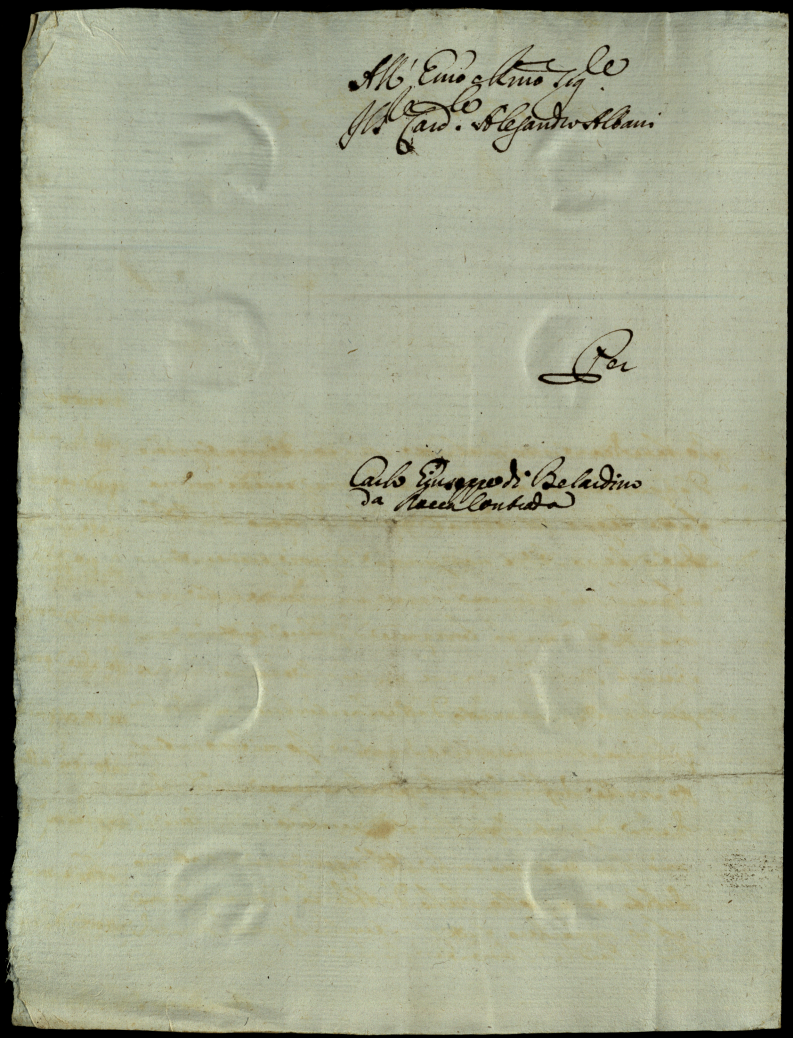 All' Emo e Rmo Sig.re
Il Sig.r Card.le Alesandro Albani
Per
Carlo Giuseppe di Belardino
da Rocca Contrada